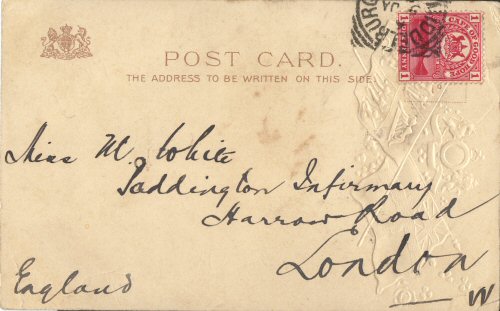 POST CARD.
THE ADDRESS TO BE WRITTEN ON THIS SIDE.
CAPE OF GOOD HOPE
1 1
Miss M. White
Paddington Infirmary
Harrow Road
London
W
England